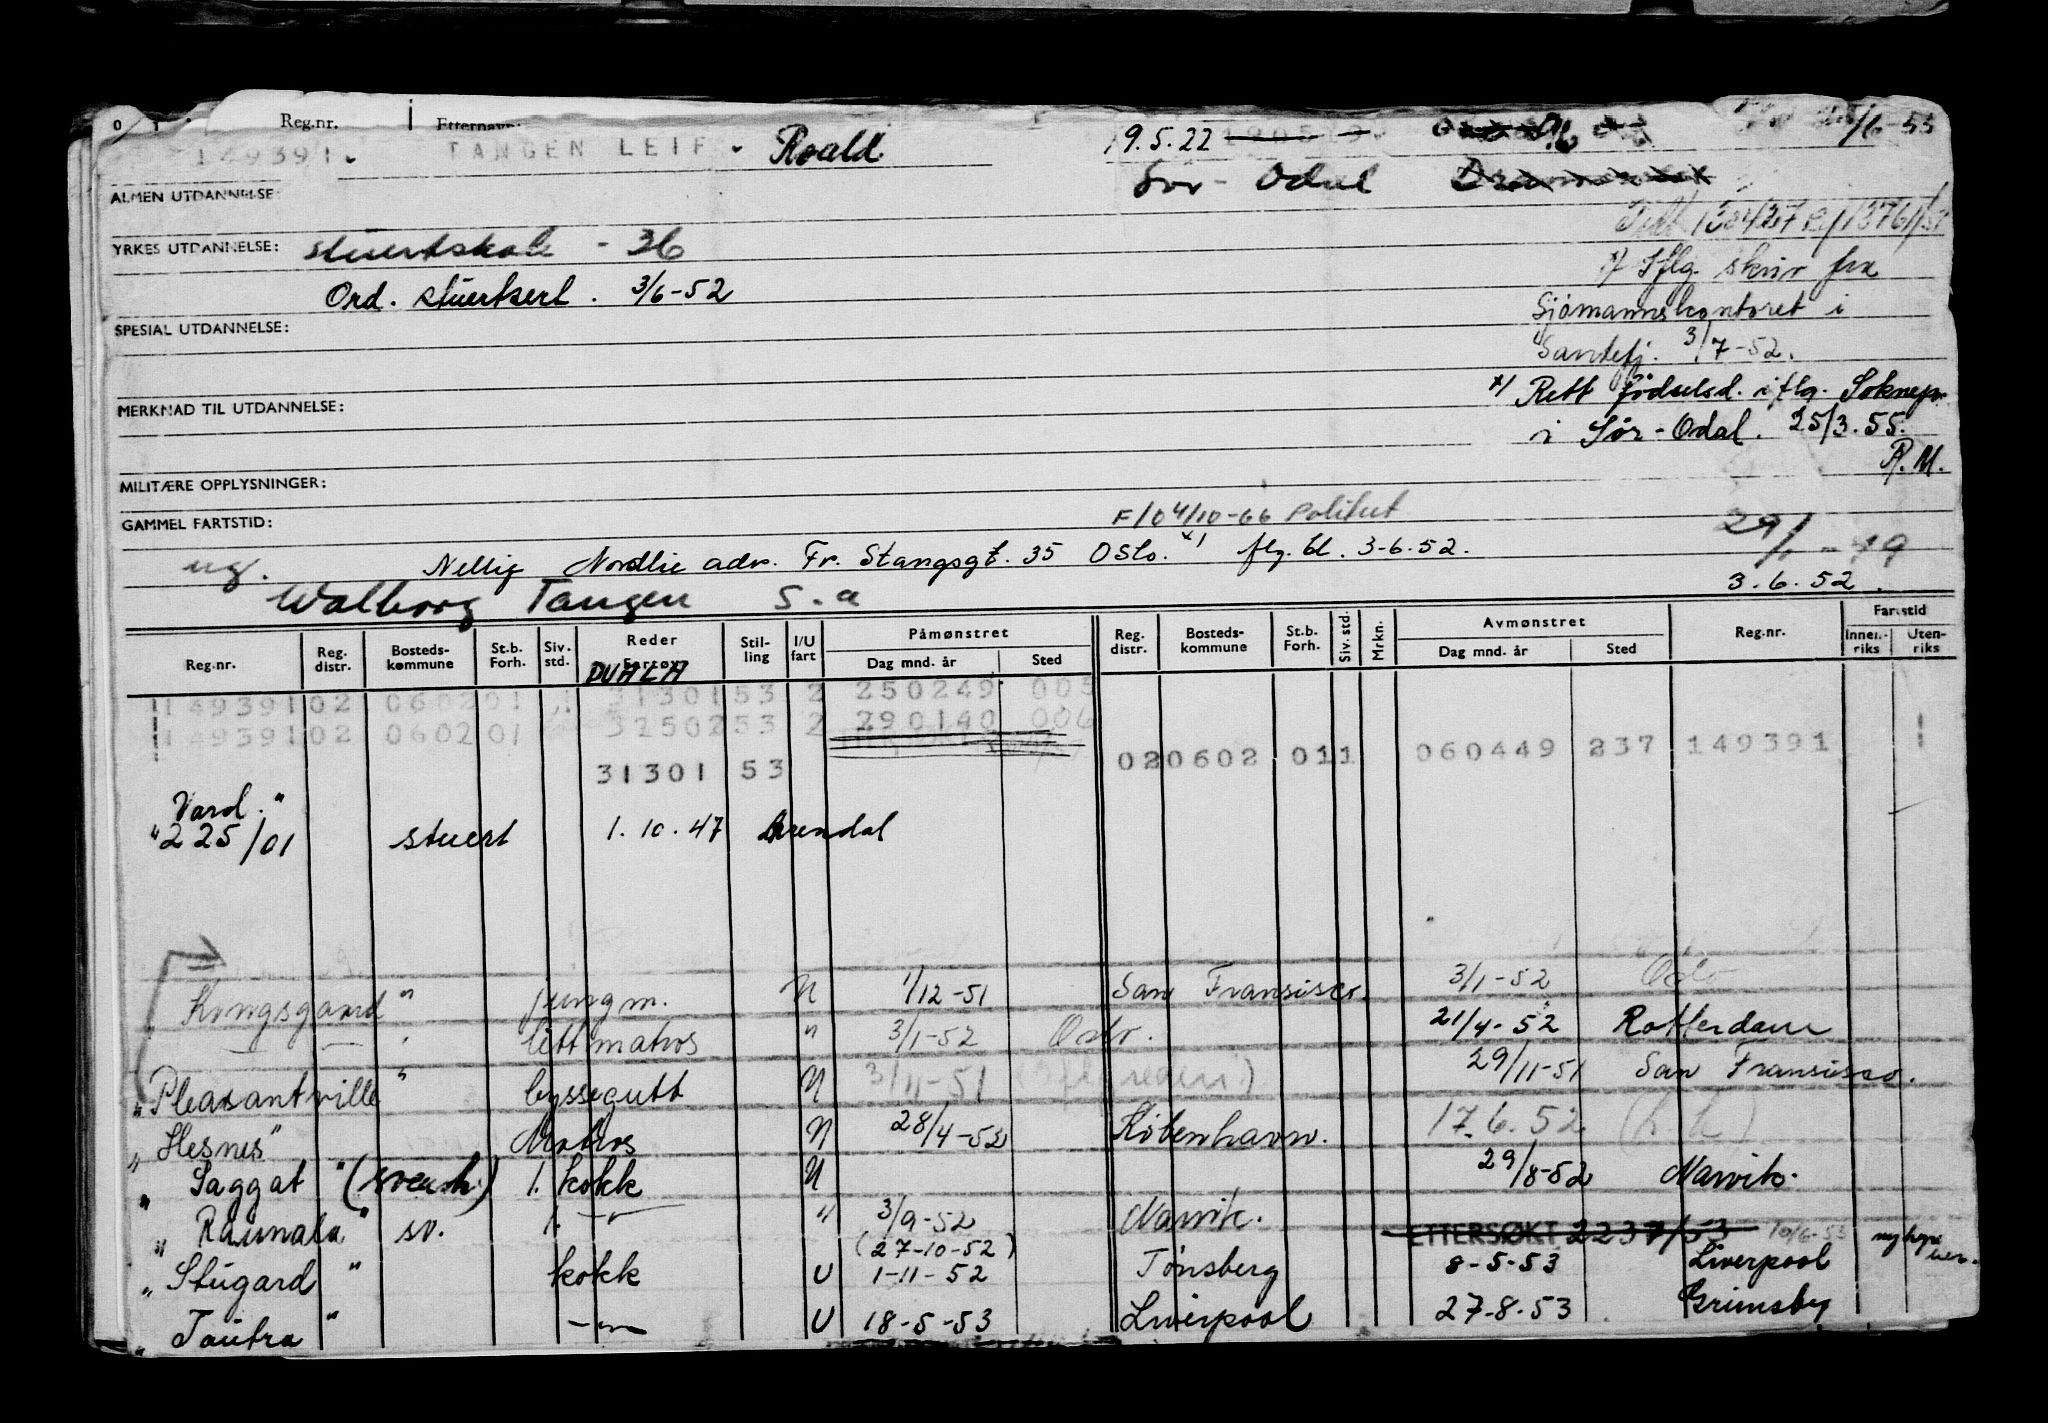 Reg.nr. Etternavn:
149391. TANGEN LEIF. Roald. 19.5.22 /6-53
Sør-Odal
ALMEN UTDANNELSE:
YRKES UTDANNELSE: stuertskole - 36
Ord. stuertsert. 3/6-52
*) Iflg. skriv fra
Sjømannskontoret i
Sandefj. 3/7-52.
SPESIAL UTDANNELSE:
*) Rett fødselsd. iflg. Soknepr.
i Sør-Odal. 25/3.55.
R.M.
MERKNAD TIL UTDANNELSE:
MILITÆRE OPPLYSNINGER:
GAMMEL FARTSTID:
F/O 4/10-66 Politiet
ug. Nellig Nordlie adr. Fr. Stangsgt. 35 Oslo. *) flg. bl. 3-6.52.
29/ -49
3.6.52.
Walborg Tangen S.a
Reg.nr. Reg. distr. Bosteds-kommune St.b. Forh. Siv. std. Reder Fartøy Stil-ling I/U fart Påmønstret Dag mnd. år Sted Reg. distr. Bosteds-kommune St.b. Forh. Siv. std. Mrkn. Avmønstret Dag mnd. år Sted Reg.nr. Fartstid Innen-riks Uten-riks
DUALA
149391 02 0602 01 31301 53 2 250249 005
149391 02 0602 01 32502 53 2 290140 006
020602 011 060449 237 149391
31301 53
Vard."
"225/01 stuert 1.10.47 Arendal
Kongsgaard" jungm. U 1/12-51 San Fransisco. 3/1-52 Oslo
— — " lett matros " 3/1-52 Oslo. 21/4-52 Rotterdam
"Pleasantville" byssegutt U 3/11-51 (iflg rederi.) 29/11-51 San Fransisco.
"Hesnes" Matros U 28/4-52 København. 17.6.52
"Saggat" (svensk) 1. kokk U 29/8-52 Narvik.
"Raunala" sv. 1. —"— " 3/9-52 Narvik.
ETTERSØKT 2237/53 10/6-53
(27-10-52)
"Stugard" kokk U 1-11-52 Tønsberg 8-5-53 Liverpool
"Tautra" —"— U 18-5-53 Liverpool 27-8-53 Grimsby